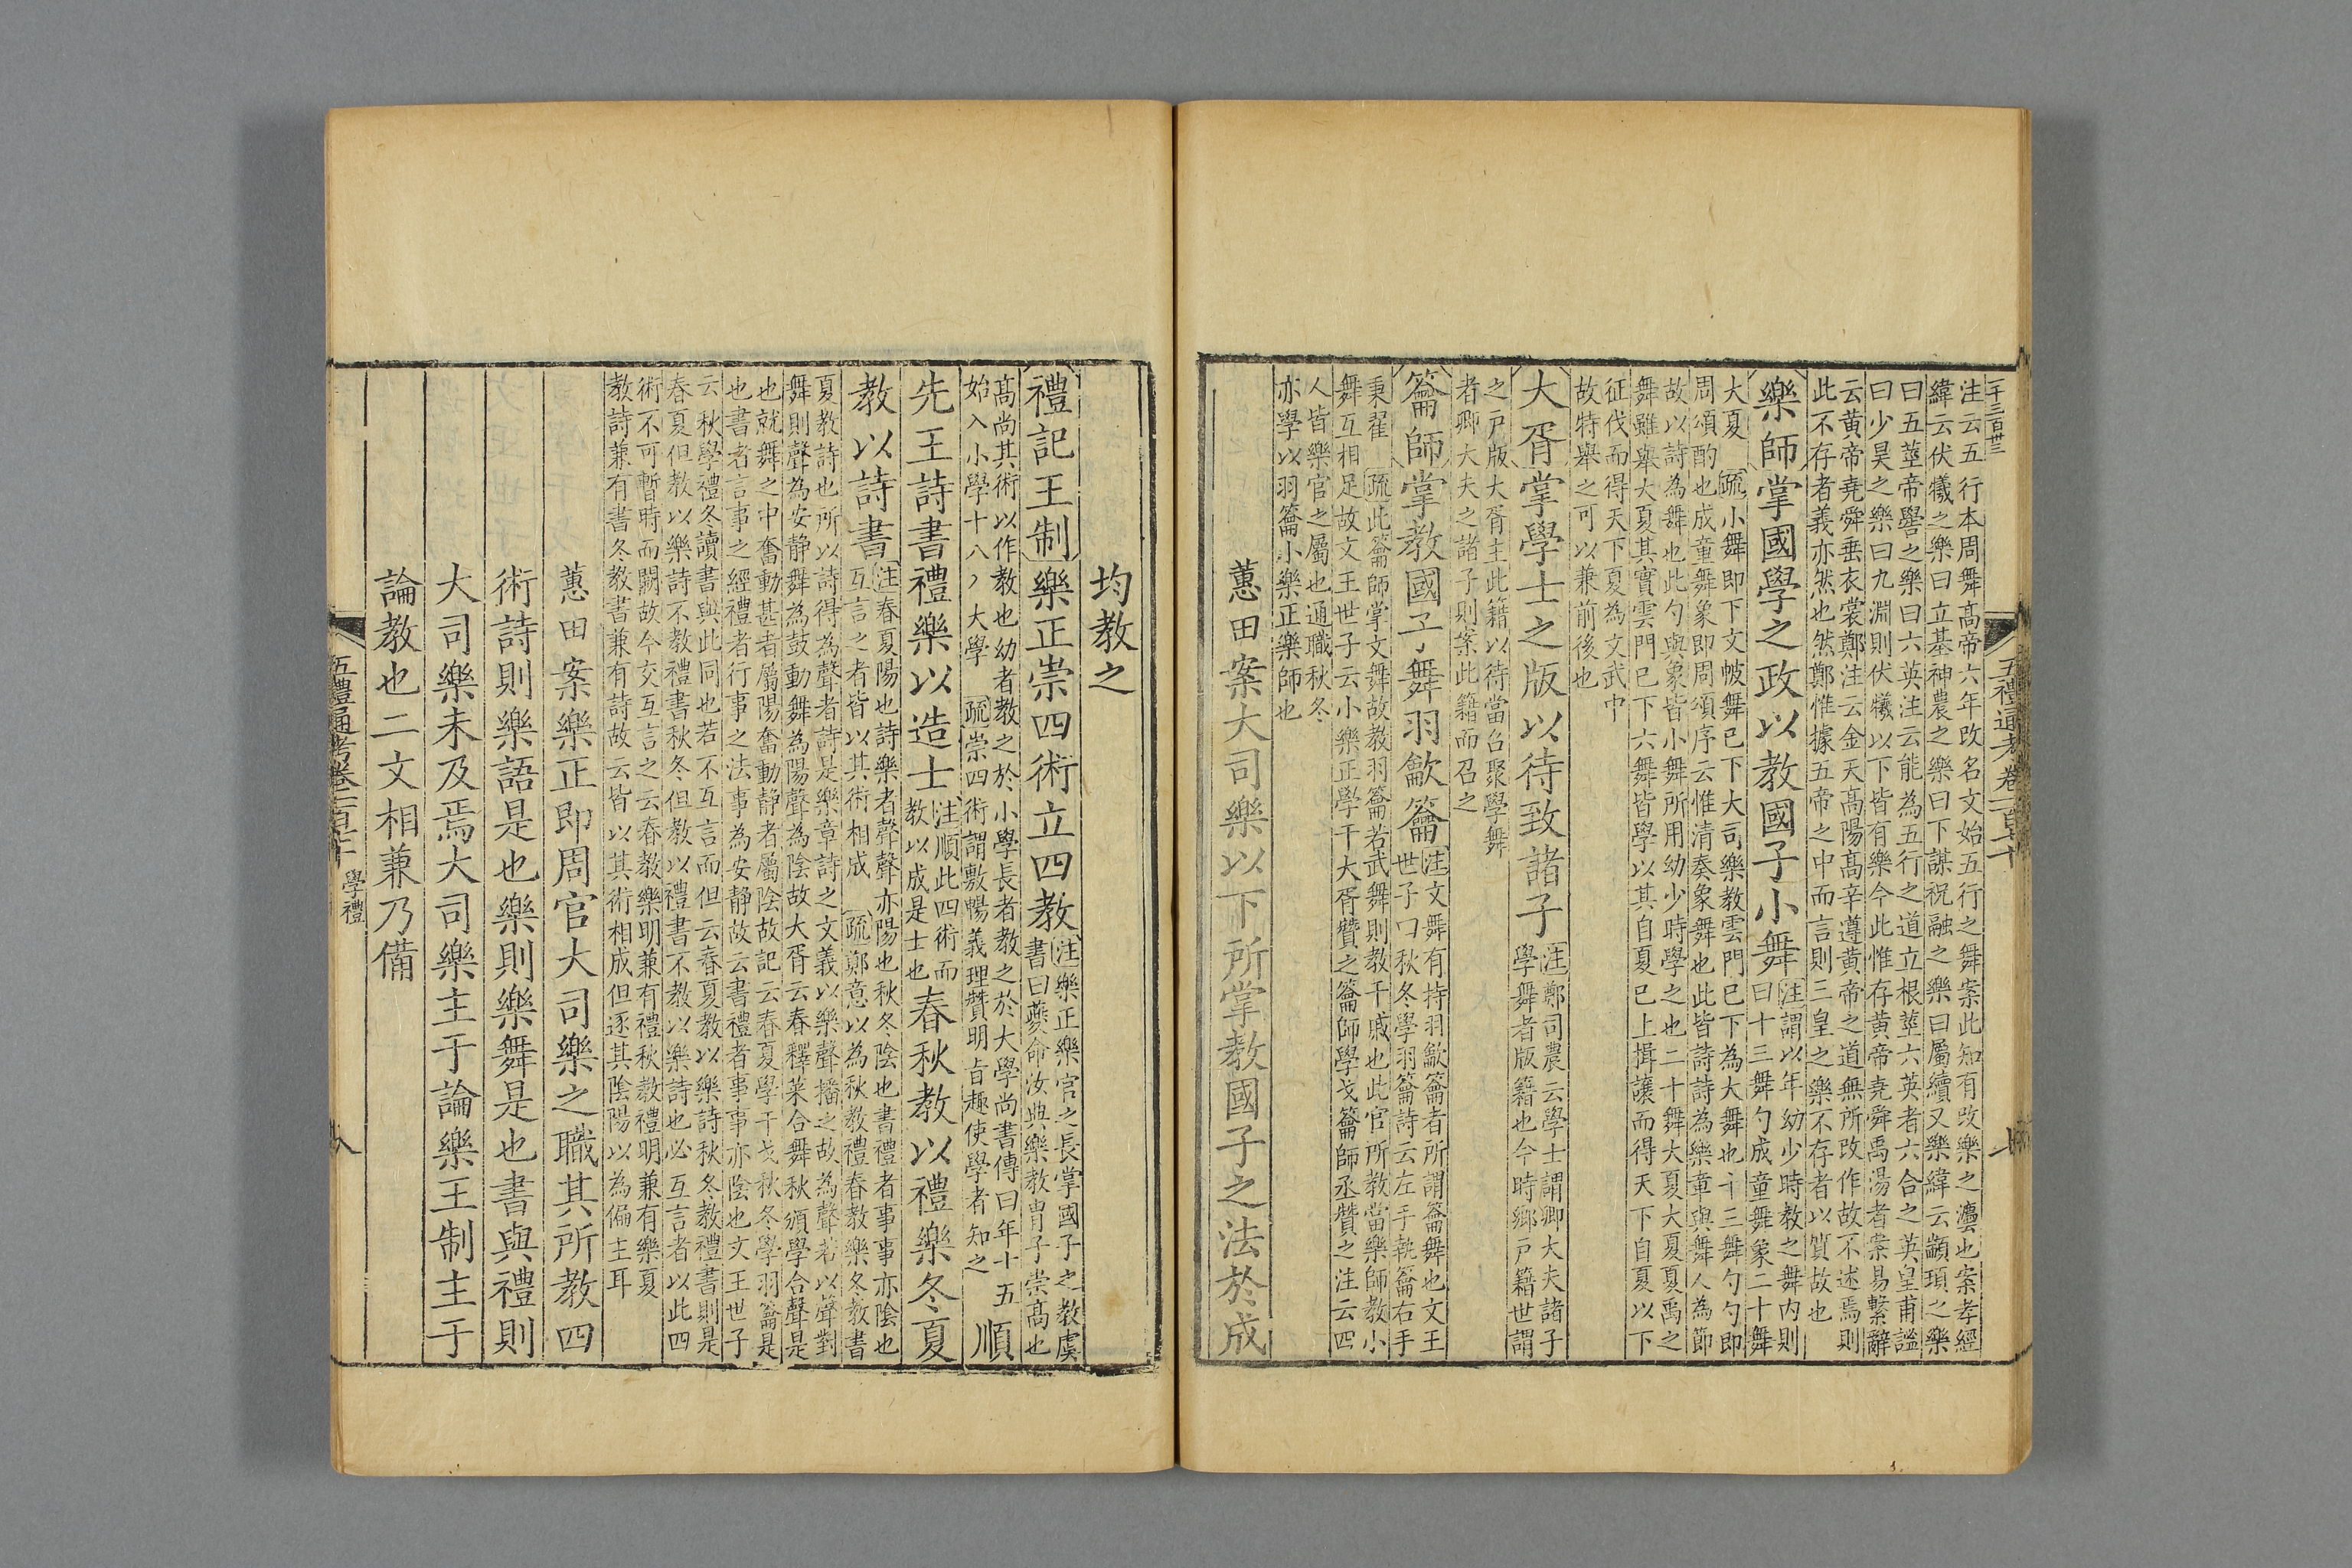 千三百卅三
五禮通考卷一百七十
七
注云五行本周舞高帝六年改名文始五行之舞案此知有改樂之灋也案孝經
緯云伏犧之樂曰立基神農之樂曰下謀祝融之樂曰屬續又樂緯云顓頊之樂
曰五莖帝嚳之樂曰六英注云能為五行之道立根莖六英者六合之英皇甫謐
曰少昊之樂曰九淵則伏犧以下皆有樂今此惟存黃帝堯舜禹湯者案易繫辭
云黃帝堯舜垂衣裳鄭注云金天高陽高辛遵黃帝之道無所改作故不述焉則
此不存者義亦然也然鄭惟據五帝之中而言則三皇之樂不存者以質故也
樂師掌國學之政以教國子小舞注謂以年幼少時教之舞內則曰十三舞勺成童舞象二十舞
大夏 疏小舞即下文帗舞已下大司樂教雲門已下為大舞也十三舞勺勺即
周頌酌也成童舞象即周頌序云惟清奏象舞也此皆詩詩為樂章與舞人為節
故以詩為舞也此勺與象皆小舞所用幼少時學之也二十舞大夏大夏夏禹之
舞雖舉大夏其實雲門已下六舞皆學以其自夏已上揖讓而得天下自夏以下
征伐而得天下夏為文武中
故特舉之可以兼前後也
大胥掌學士之版以待致諸子注鄭司農云學士謂卿大夫諸子學舞者版籍也今時鄉戶籍世謂
之戶版大胥主此籍以待當召聚學舞
者卿大夫之諸子則案此籍而召之
籥師掌教國子舞羽龡籥注文舞有持羽龡籥者所謂籥舞也文王世子曰秋冬學羽籥詩云左手執籥右手
秉翟 疏此籥師掌文舞故教羽籥若武舞則教干戚也此官所教當樂師教小
舞互相足故文王世子云小樂正學干大胥贊之籥師學戈籥師丞贊之注云四
人皆樂官之屬也通職秋冬
亦學以羽籥小樂正樂師也
蕙田案大司樂以下所掌教國子之法於成
均教之
禮記王制樂正崇四術立四教注樂正樂官之長掌國子之教虞書曰夔命汝典樂教胄子崇高也
高尚其術以作教也幼者教之於小學長者教之於大學尚書傳曰年十五
始入小學十八入大學 疏崇四術謂敷暢義理贊明旨趣使學者知之順
先王詩書禮樂以造士注順此四術而教以成是士也春秋教以禮樂冬夏
教以詩書注春夏陽也詩樂者聲聲亦陽也秋冬陰也書禮者事事亦陰也互言之者皆以其術相成 疏鄭意以為秋教禮春教樂冬教書
夏教詩也所以詩得為聲者詩是樂章詩之文義以樂聲播之故為聲若以聲對
舞則聲為安靜舞為鼓動舞為陽聲為陰故大胥云春釋菜合舞秋頒學合聲是
也就舞之中奮動甚者屬陽奮動靜者屬陰故記云春夏學干戈秋冬學羽籥是
也書者言事之經禮者行事之法事為安靜故云書禮者事事亦陰也文王世子
云秋學禮冬讀書與此同也若不互言而但云春夏教以樂詩秋冬教禮書則是
春夏但教以樂詩不教禮書秋冬但教以禮書不教以樂詩也必互言者以此四
術不可暫時而闕故今交互言之云春教樂明兼有禮秋教禮明兼有樂夏
教詩兼有書冬教書兼有詩故云皆以其術相成但逐其陰陽以為偏主耳
蕙田案樂正即周官大司樂之職其所教四
術詩則樂語是也樂則樂舞是也書與禮則
大司樂未及焉大司樂主于論樂王制主于
論教也二文相兼乃備
五禮通考卷一百七十 學禮
八